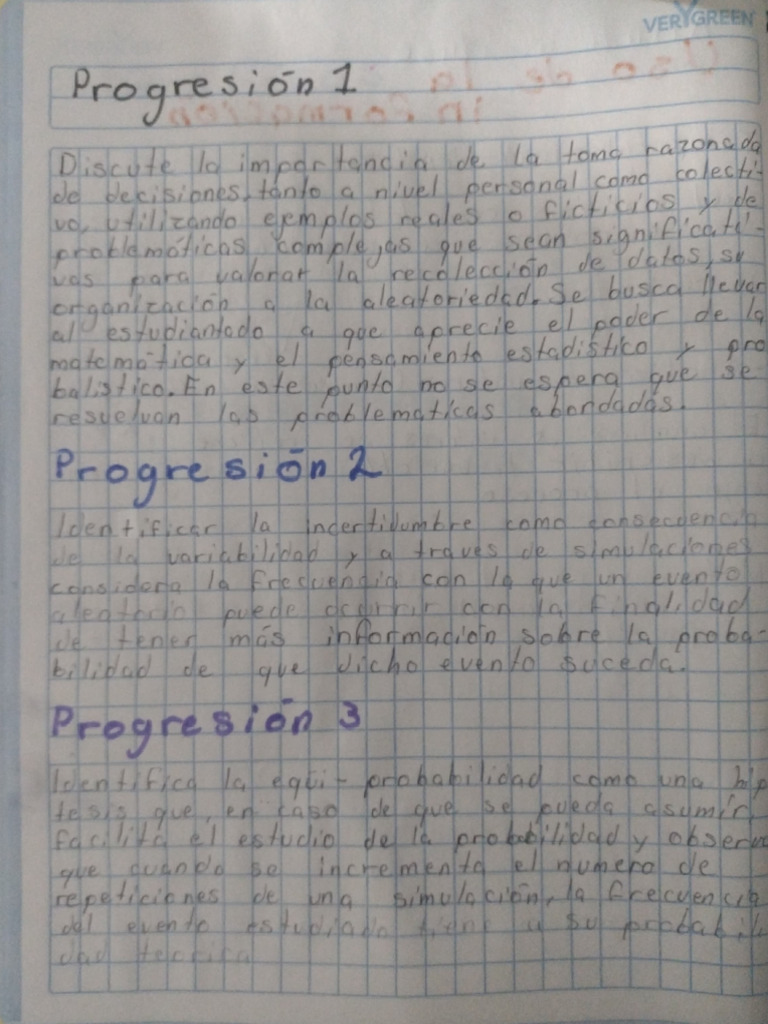 VERYGREEN
Progresión 1
Discute la importancia de la toma razonada
de decisiones, tanto a nivel personal como colecti-
vo, utilizando ejemplos reales o ficticios y de
problemáticas complejas que sean significati-
vas para valorar la recolección de datos, su
organización a la aleatoriedad. Se busca llevar
al estudiantado a que aprecie el poder de la
matemática y el pensamiento estadístico y pro
balistico. En este punto no se espera que se
resuelvan las problematicas abordadas.
Progresión 2
Identificar la incertidumbre como consecuencia
de la variabilidad y a traves de simulaciones
considera la frecuencia con la que un evento
aleatorio puede ocurrir con la finalidad
de tener más información sobre la proba-
bilidad de que dicho evento suceda.
Progresión 3
Identifica la equi-probabilidad como una hip
tesis que, en caso de que se pueda asumir
facilita el estudio de la probabilidad y observa
que cuando se incrementa el numero de
repeticiones de una simulación, la frecuencia
del evento estudiado tiene a su probabili
dad teorica